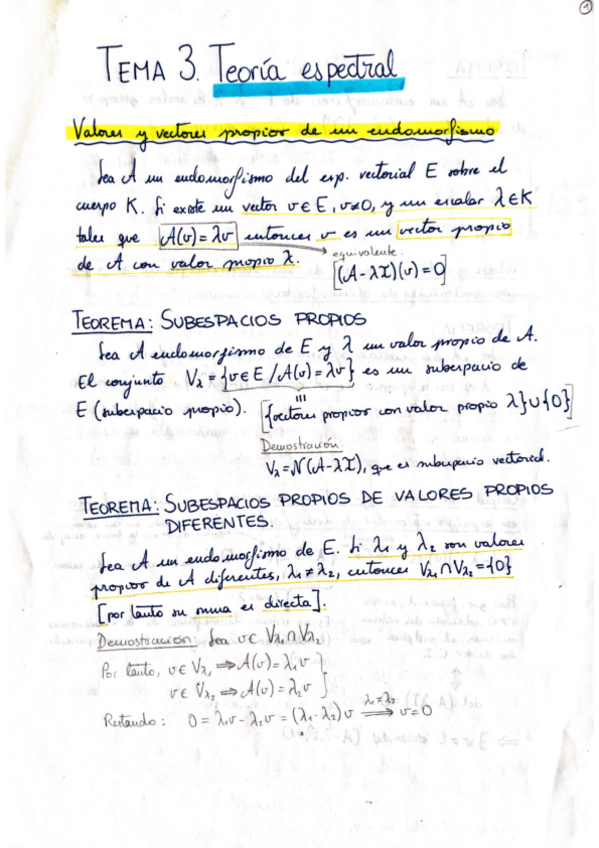 1
TEMA 3. Teoría espectral
Valores y vectores propios de un endomorfismo
Sea A un endomorfismo del esp. vectorial E sobre el
cuerpo K. Si existe un vector v∈E, v≠0, y un escalar λ∈K
tales que A(v)=λv entonces v es un vector propio
de A con valor propio λ.
equivalente
[(A-λI)(v)=0]
TEOREMA: SUBESPACIOS PROPIOS
Sea A endomorfismo de E y λ un valor propio de A.
El conjunto Vλ={v∈E/A(v)=λv} es un subespacio de
E (subespacio propio). [{vectores propios con valor propio λ}∪{0}]
Demostración:
Vλ=N(A-λI), que es subespacio vectorial.
TEOREMA: SUBESPACIOS PROPIOS DE VALORES PROPIOS
DIFERENTES.
Sea A un endomorfismo de E. Si λ₁ y λ₂ son valores
propios de A diferentes, λ₁≠λ₂, entonces Vλ₁∩Vλ₂={0}
[por tanto su suma es directa].
Demostración: Sea v∈ Vλ₁∩Vλ₂
Por tanto, v∈Vλ₁ ⇒ A(v)=λ₁v
v∈Vλ₂ ⇒ A(v)=λ₂v
Restando: 0=λ₁v-λ₂v=(λ₁-λ₂)v λ₁≠λ₂ ⟹ v=0